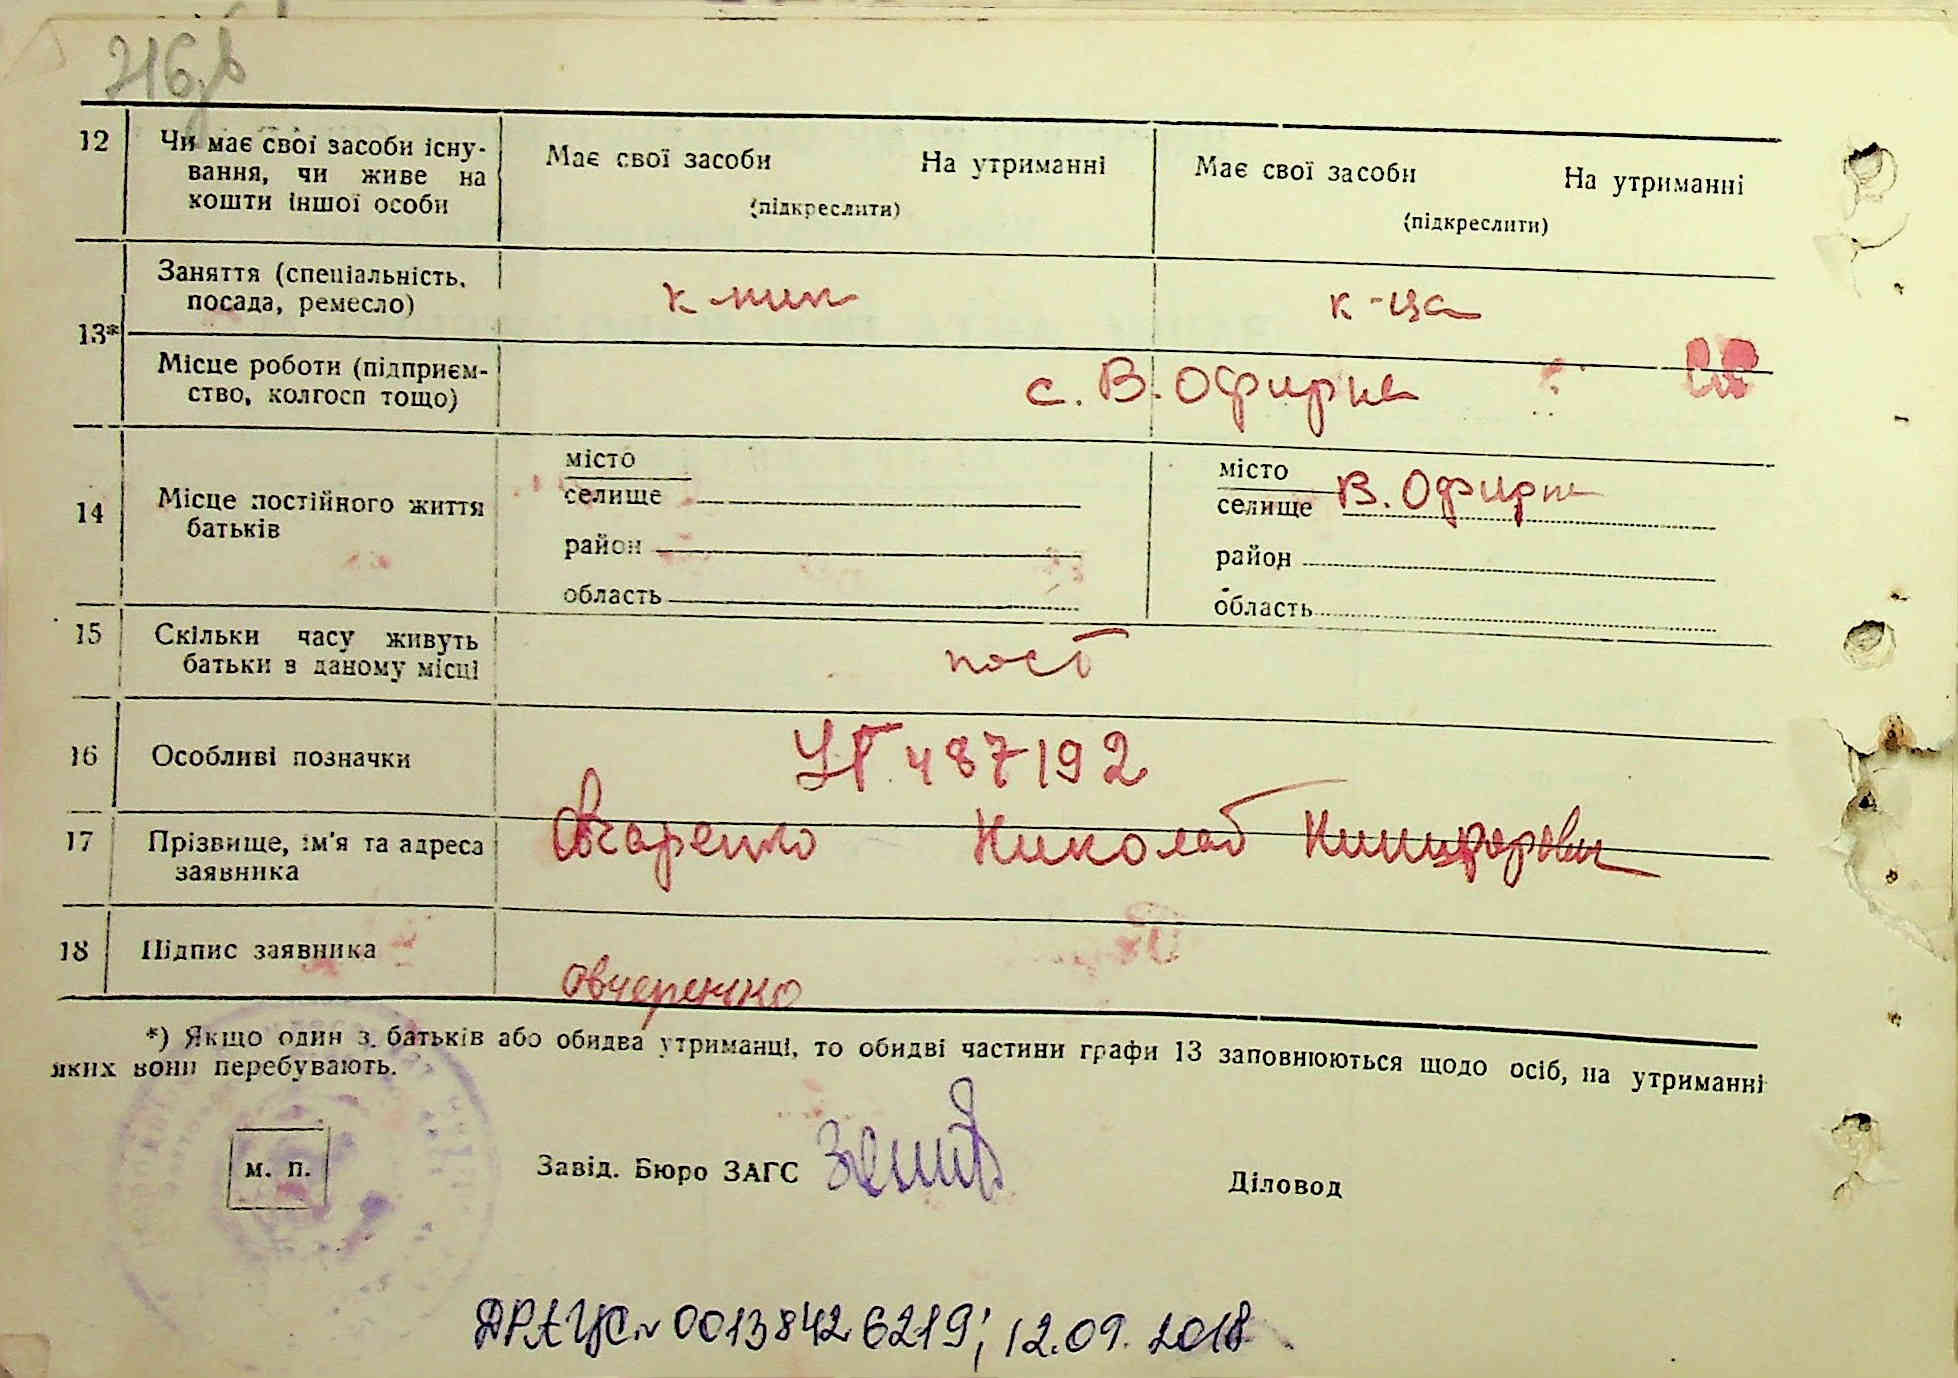 12 Чи має свої засоби існу-
вання, чи живе на
кошти іншої особи
Має свої засоби На утриманні
(підкреслити)
Має свої засоби На утриманні
(підкреслити)
13* Заняття (спеціальність,
посада, ремесло)
к-ник к-ца
Місце роботи (підприєм-
ство, колгосп тощо)
с. В. Офирна
14 Місце постійного життя
батьків
місто
селище
район
область
місто
селище В. Офирна
район
область
15 Скільки часу живуть
батьки в даному місці
пост
16 Особливі позначки
487192
17 Прізвище, ім'я та адреса
заявника
Овчаренко Николай
18 Підпис заявника
Овчаренко
*) Якщо один з батьків або обидва утриманці, то обидві частини графи 13 заповнюються щодо осіб, на утриманні
яких вони перебувають.
м. п.
Завід. Бюро ЗАГС
Діловод
ДРАЦС № 00138426219; 12.09.2018